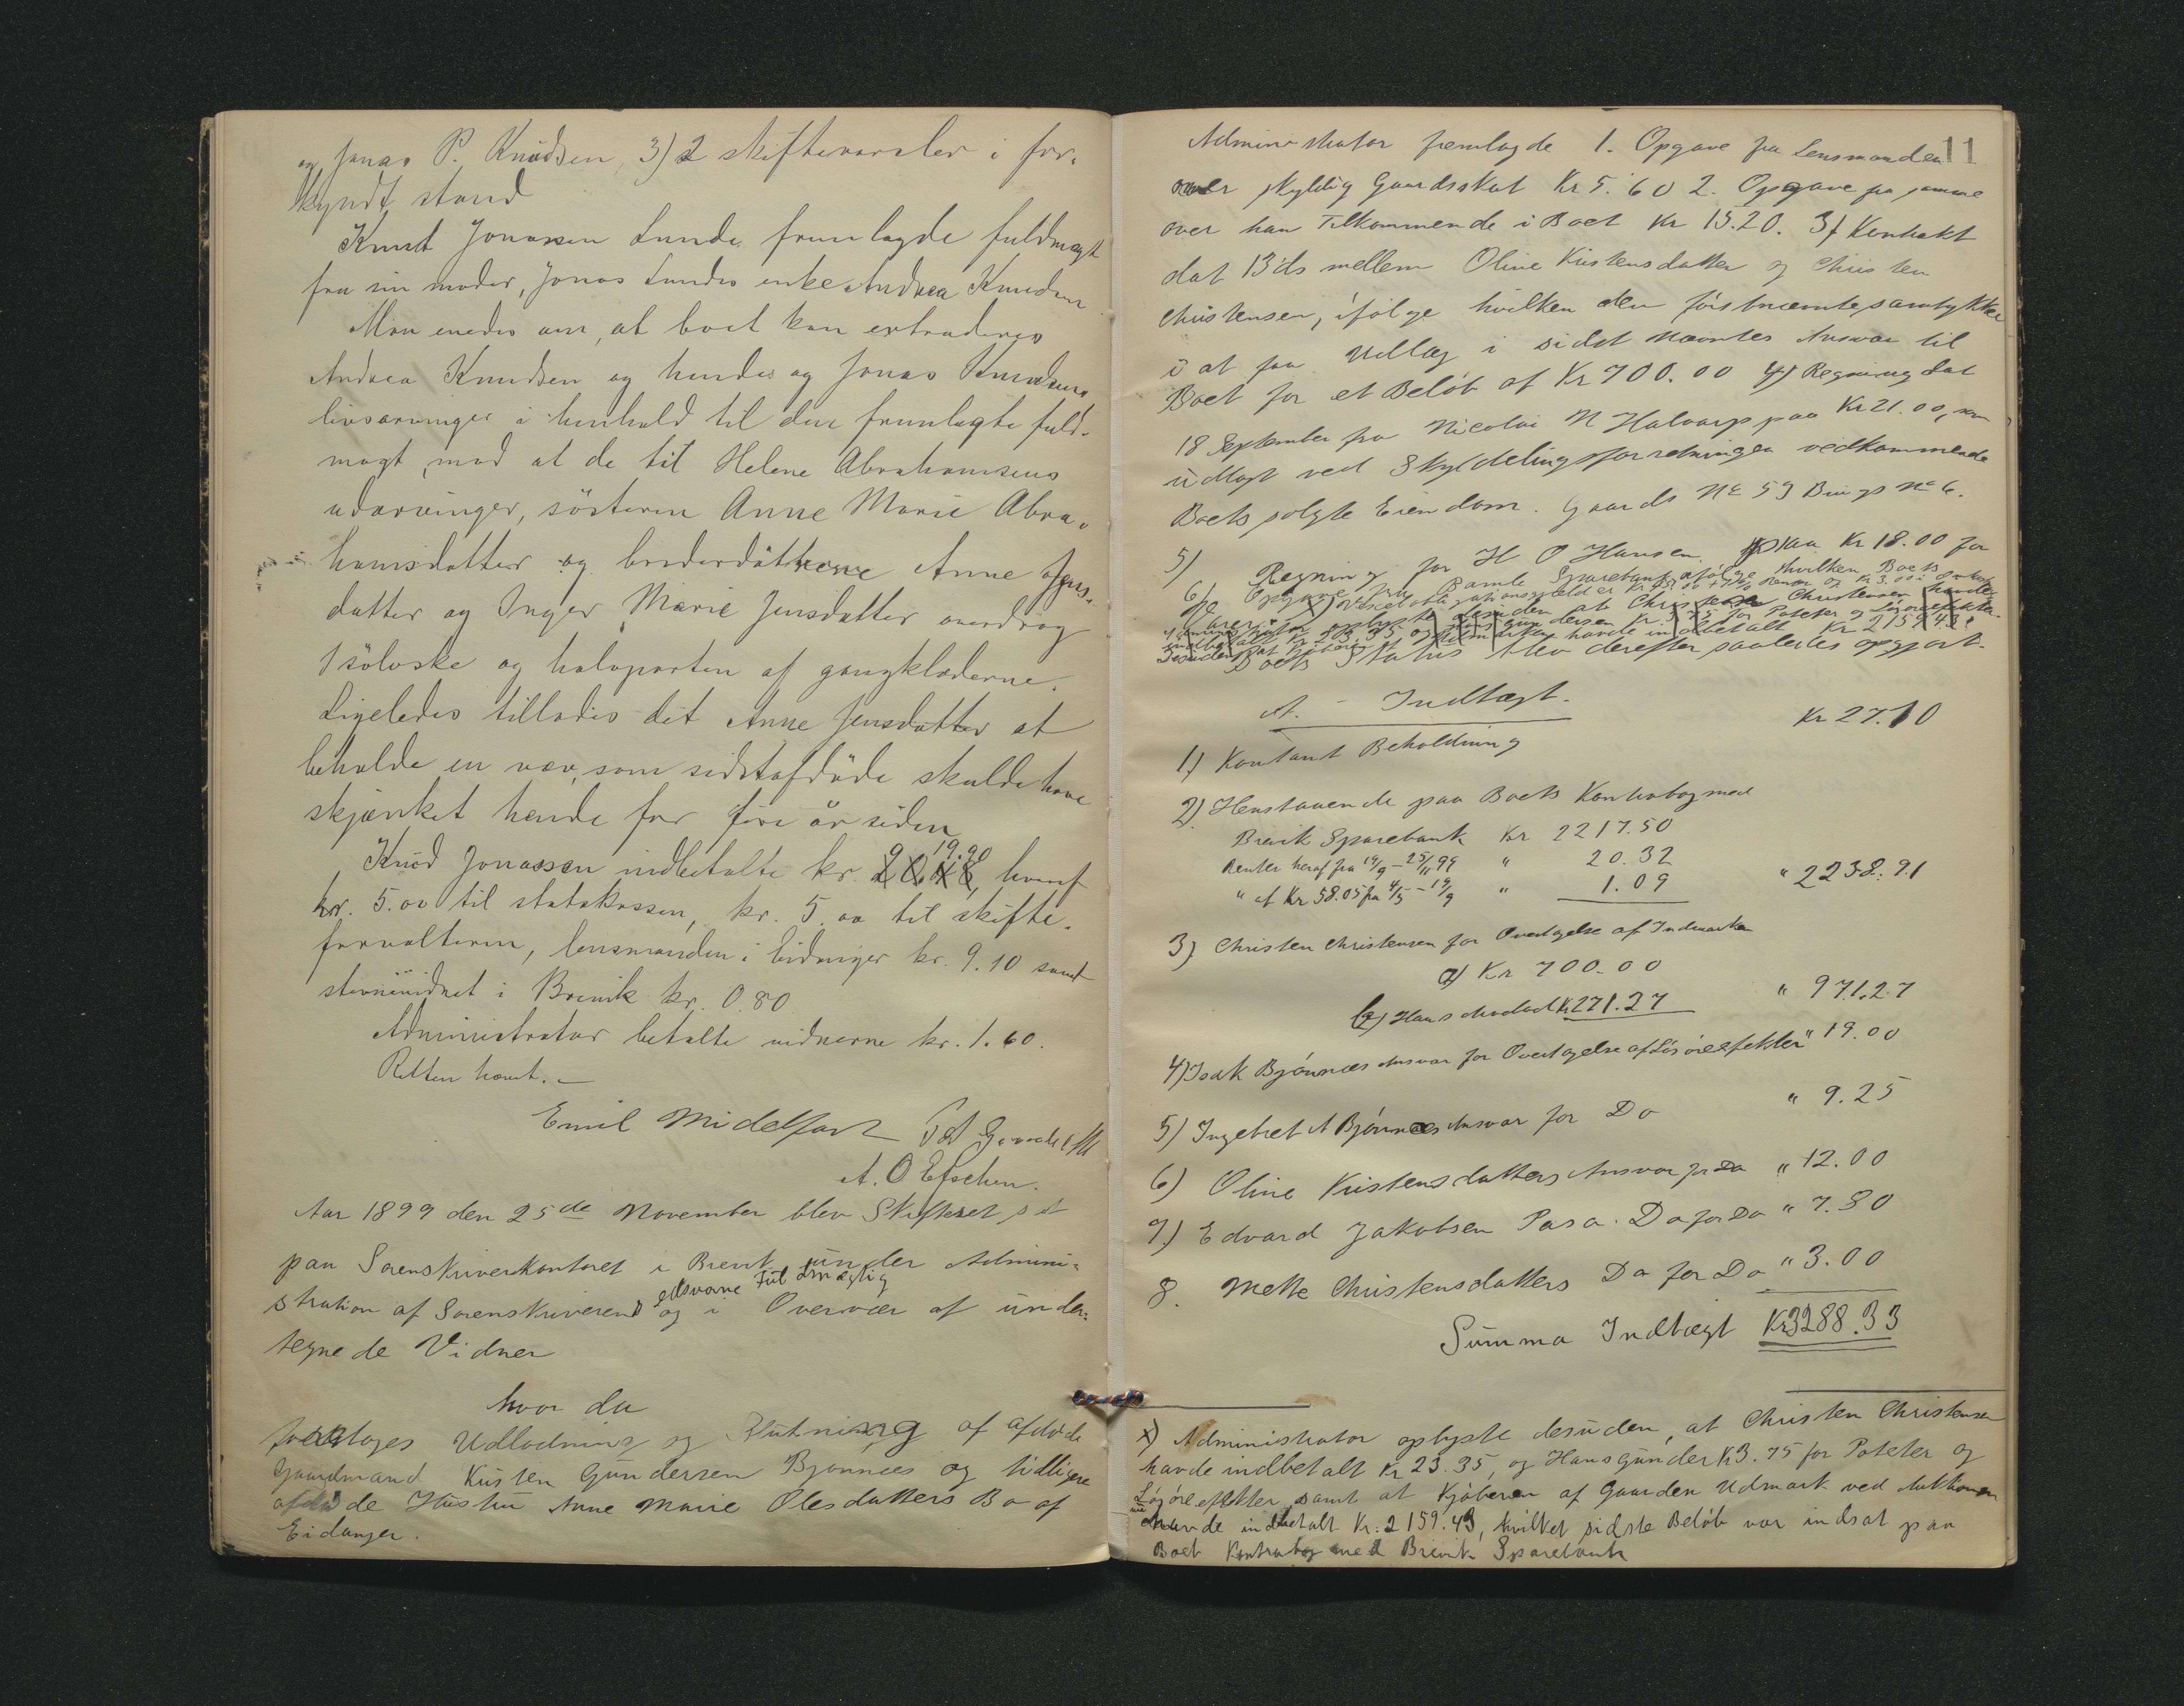 og Jonas P. Knudsen, 3) 2 skiftevarsler i for-
kyndt stand
Knut Jonassen Lunde fremlagde fuldmagt
fra sin moder, Jonas Lundes enke Andrea Knudsen
Man enedes om, at boet kan extraderes
Andrea Knudsen og hendes og Jonas Knudsens
livsarvinger i henhold til den fremlagte fuld-
magt, mod at de til Helene Abrahamsens
udarvinger, søsteren Anne Marie Abra-
hamsdatter og broderdøtrene Anne Jens-
datter og Inger Marie Jensdatter overdrog
1 sølvske og halvparten af gangklæderne.
Ligeledes tillodes det Anne Jensdatter at
beholde en væv, som sidstafdøde skulde have
skjænket hende for fire år siden
Knud Jonassen indbetalte kr. 19.90, hvoraf
kr. 5.00 til statskassen, kr. 5.00 til skifte-
forvalteren, lensmanden i Eidanger kr. 9.10 samt
stevnevidnet i Brevik kr. 0.80
Administrator betalte vidnerne kr. 1.60.
Retten hævet. –
Emil Midelfart
A. O Efschen.
Aar 1899 den 25de November blev Skifteret sat
paa Sorenskriverkontoret i Brevik under Admini-
stration af Sorenskriverens edsvorne Fuldmægtig og i Overvær af under-
tegnede Vidner
hvor da
foretoges Udlodning og Slutning af afdøde
Gaardmand Kristen Gundersen Bjønnes og tidligere
afdøde Hustru Anne Marie Olesdatters Bo af
Eidanger.
11
Administrator fremlagde 1. Opgave fra Lensmanden
over skyldig Gaardsskat Kr 5.60 2. Opgave fra samme
over han Tilkommende i Boet Kr 15.20. 3) Kontrakt
dat 13 ds mellem Oline Kristensdatter og Christen
Christensen, ifølge hvilken den førstnæmte samtykker
i at faa Udlæg i sidst nævntes Ansvar til
Boet for et Beløb af Kr 700.00 4) Regning dat
18 September fra Nicolai N Halvarp paa Kr 21.00, som
udlagt ved Skyldelingsforretningen vedkommende
Boets solgte Eiendom. Gaards No 59 Brugs No 6.
5) Regning for H O Hansen paa Kr 18.00 for
6) Opgave fra Bamle Sparebank ifølge hvilken Boets
Boets Status blev derefter saaledes opgjort.
A. – Indtægt.
1) Kontant Beholdning Kr 27.10
2) Henstaaende paa Boets Kontrabog med
Brevik Sparebank Kr 2217.50
Renter heraf fra 19/9 – 25/11 99 " 20.32
" af Kr 58.05 fra 4/5 – 19/9 " 1.09 " 2238.91
3) Christen Christensen for Overtagelse af Indmarken
a) Kr 700.00
b) Hans Arvelod Kr 271.27 " 971.27
4) Isak Bjønnæs Ansvar for Overtagelse af Løsøreefekter " 19.00
5) Ingebret A Bjønnæs Ansvar for Do " 9.25
6) Oline Kristensdatters Ansvar for Do " 12.00
7.) Edvard Jakobsen Pasa. Do for Do " 7.80
8. Mette Christensdatters Do for Do " 3.00
Summa Indtægt Kr 3288.33
x) Administrator oplyste desuden, at Christen Christensen
havde indbetalt Kr 23.35, og Hans Gunder Kr 3.75 for Poteter og
Løsøreefekter, samt at Kjøberen af Gaarden Udmark ved Auktionen
havde indbetalt Kr. 2159.43, hvilket sidste Beløb var indsat paa
Boet Kontrabog med Brevik Sparebank